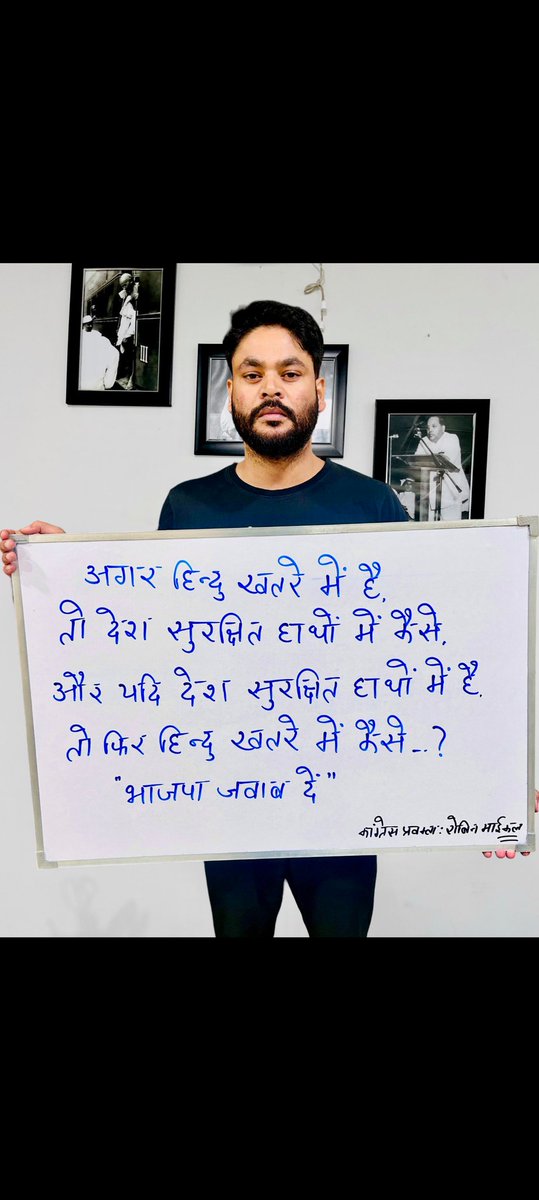 अगर हिन्दु खतरे में है,
तो देश सुरक्षित हाथों में कैसे,
और यदि देश सुरक्षित हाथों में है,
तो फिर हिन्दु खतरे में कैसे...?
"भाजपा जवाब दें"
कांग्रेस प्रवक्ता: रोबिन माईकल